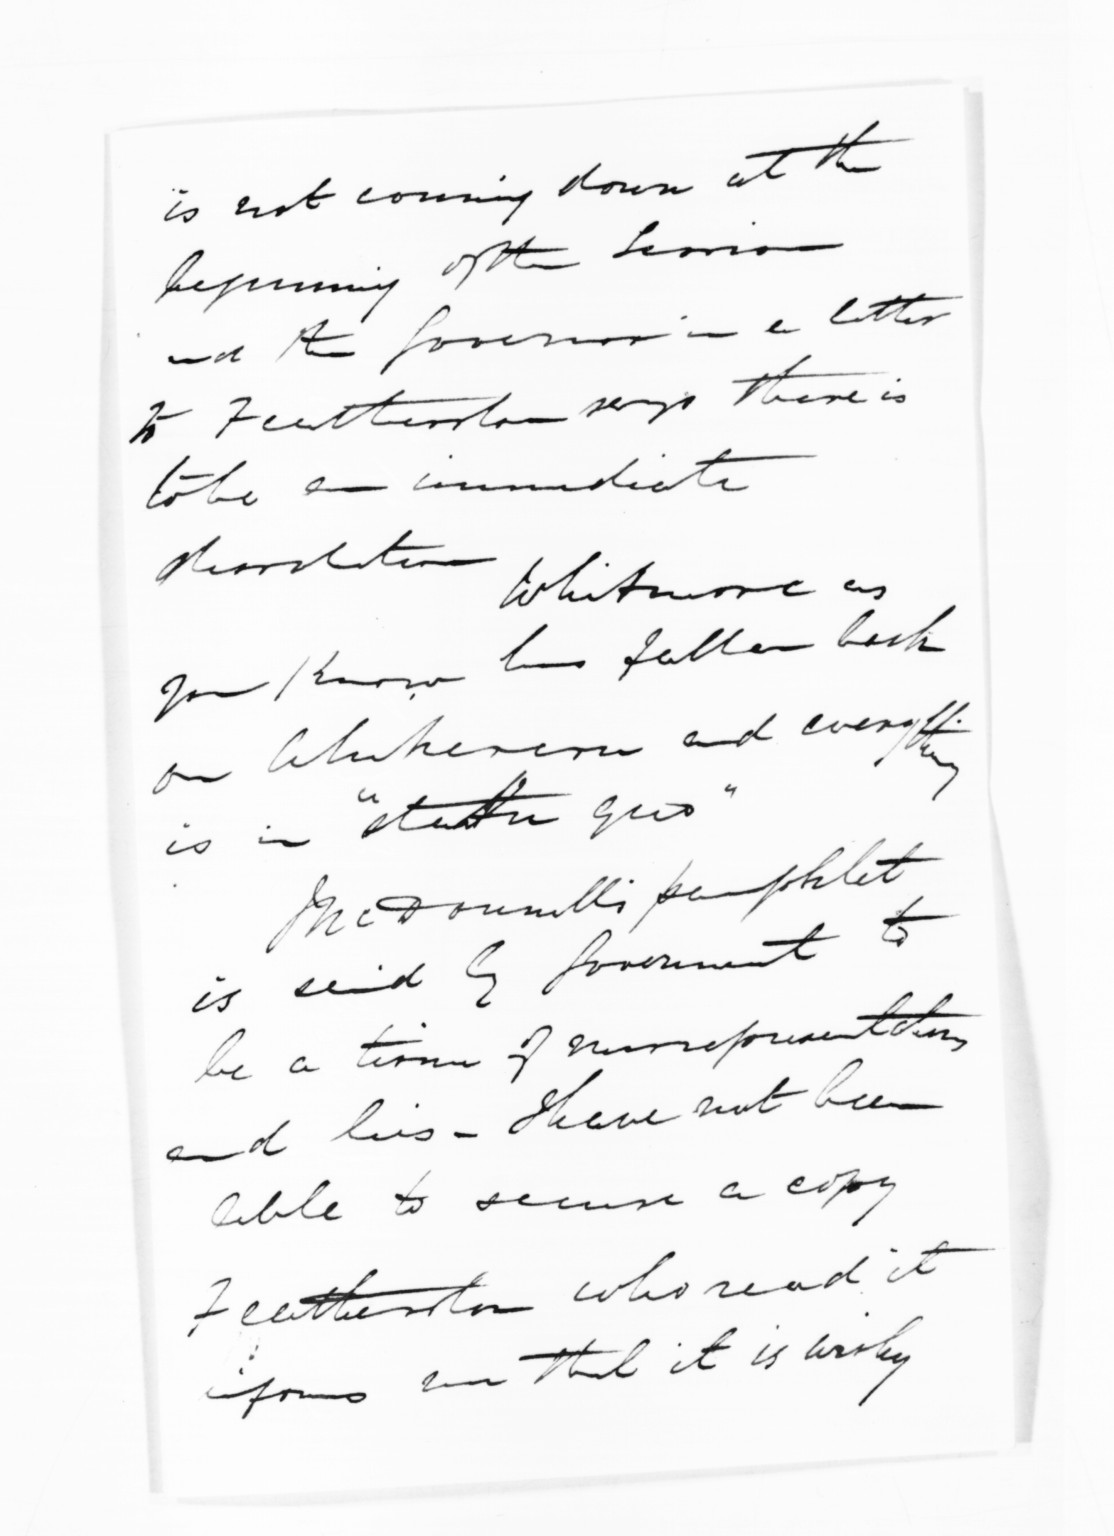 is not coming down at the
beginning of the Session
and the Governor in a letter
to Featherston says there is
to be an immediate
dissolution
Whitmore as
you know has fallen back
on and everything
is in "statu quo"
McDonnell's pamphlet
is said by Government to
be a tissue of misrepresentations
and lies - I have not been
able to secure a copy
Featherston who read it
informs me that it is wishy